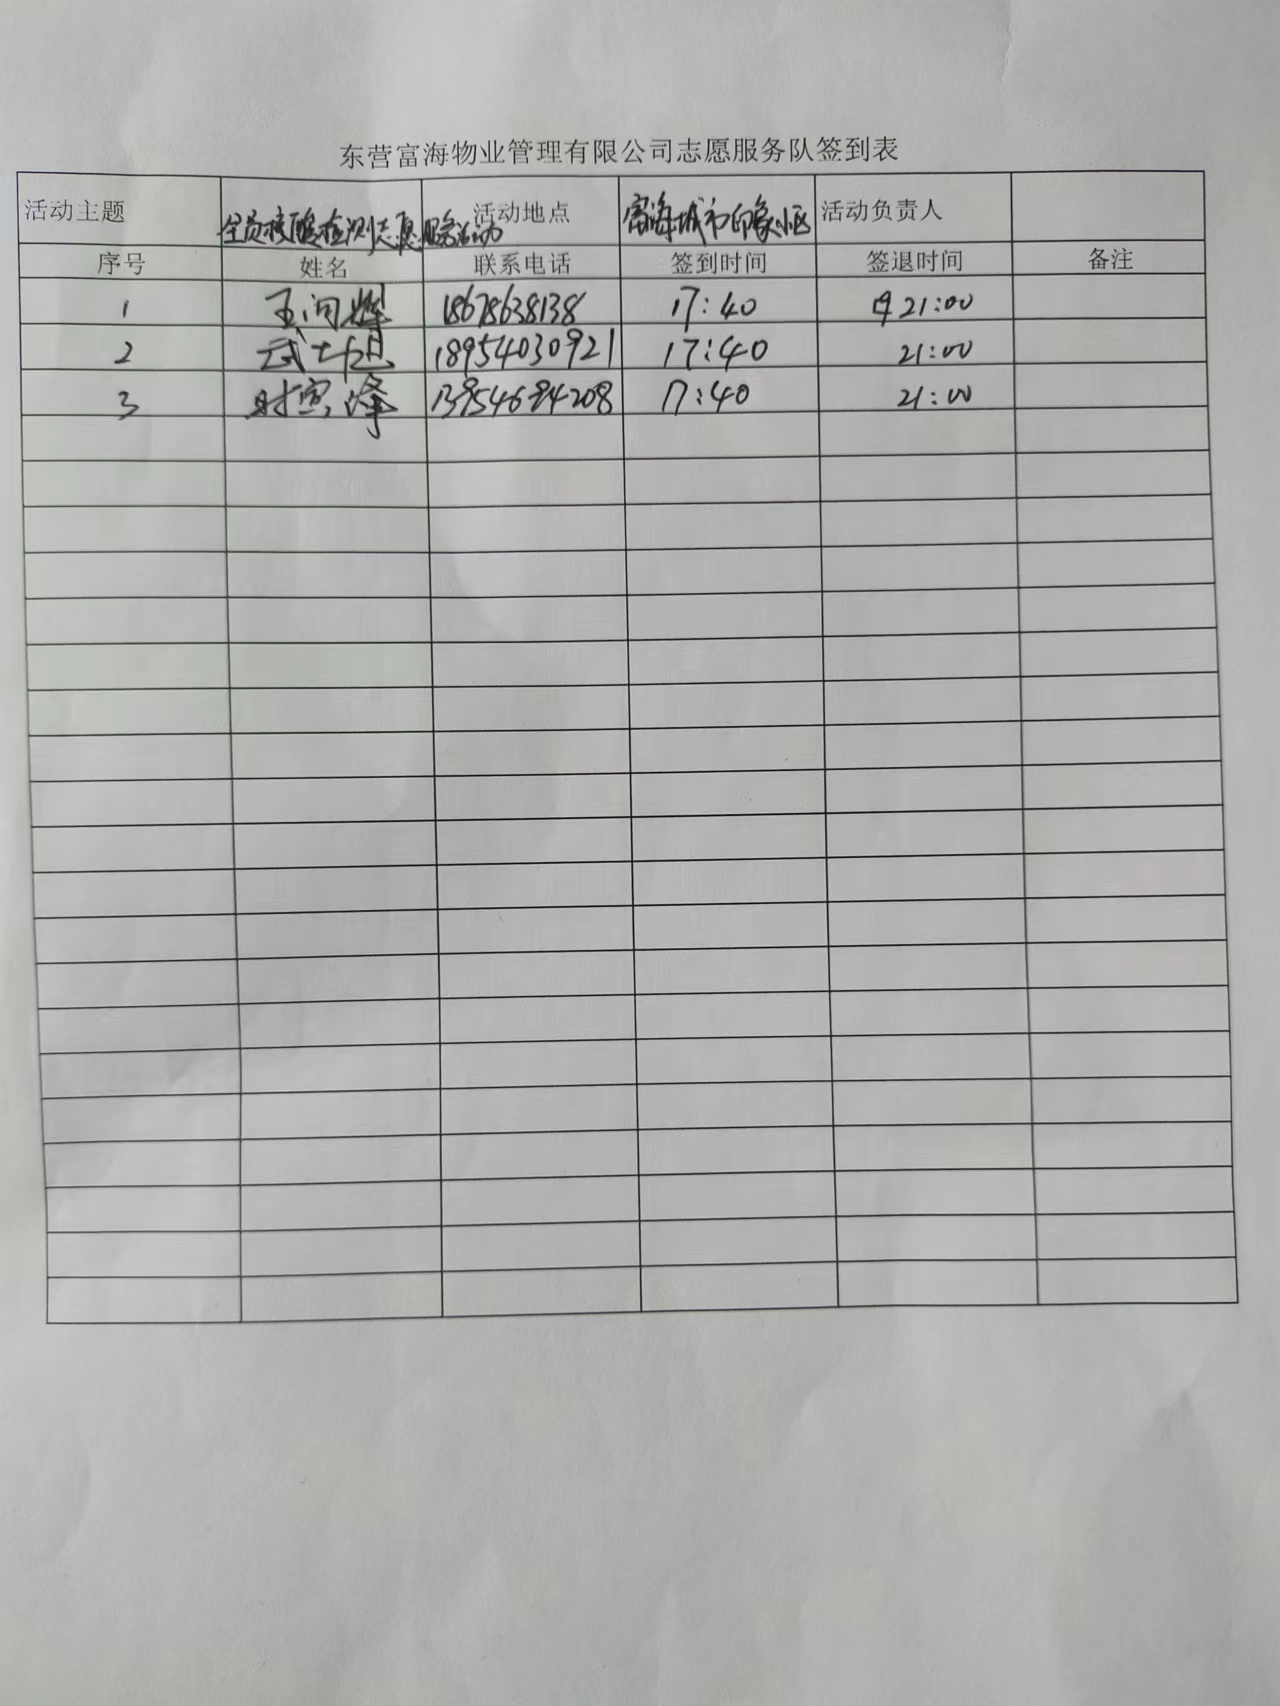 东营富海物业管理有限公司志愿服务队签到表
活动主题 全员核酸检测志愿服务活动 活动地点 富海城市印象小区 活动负责人
序号 姓名 联系电话 签到时间 签退时间 备注
1 18678638138 17:40 21:00
2 18954030921 17:40 21:00
3 13954694208 17:40 21:00